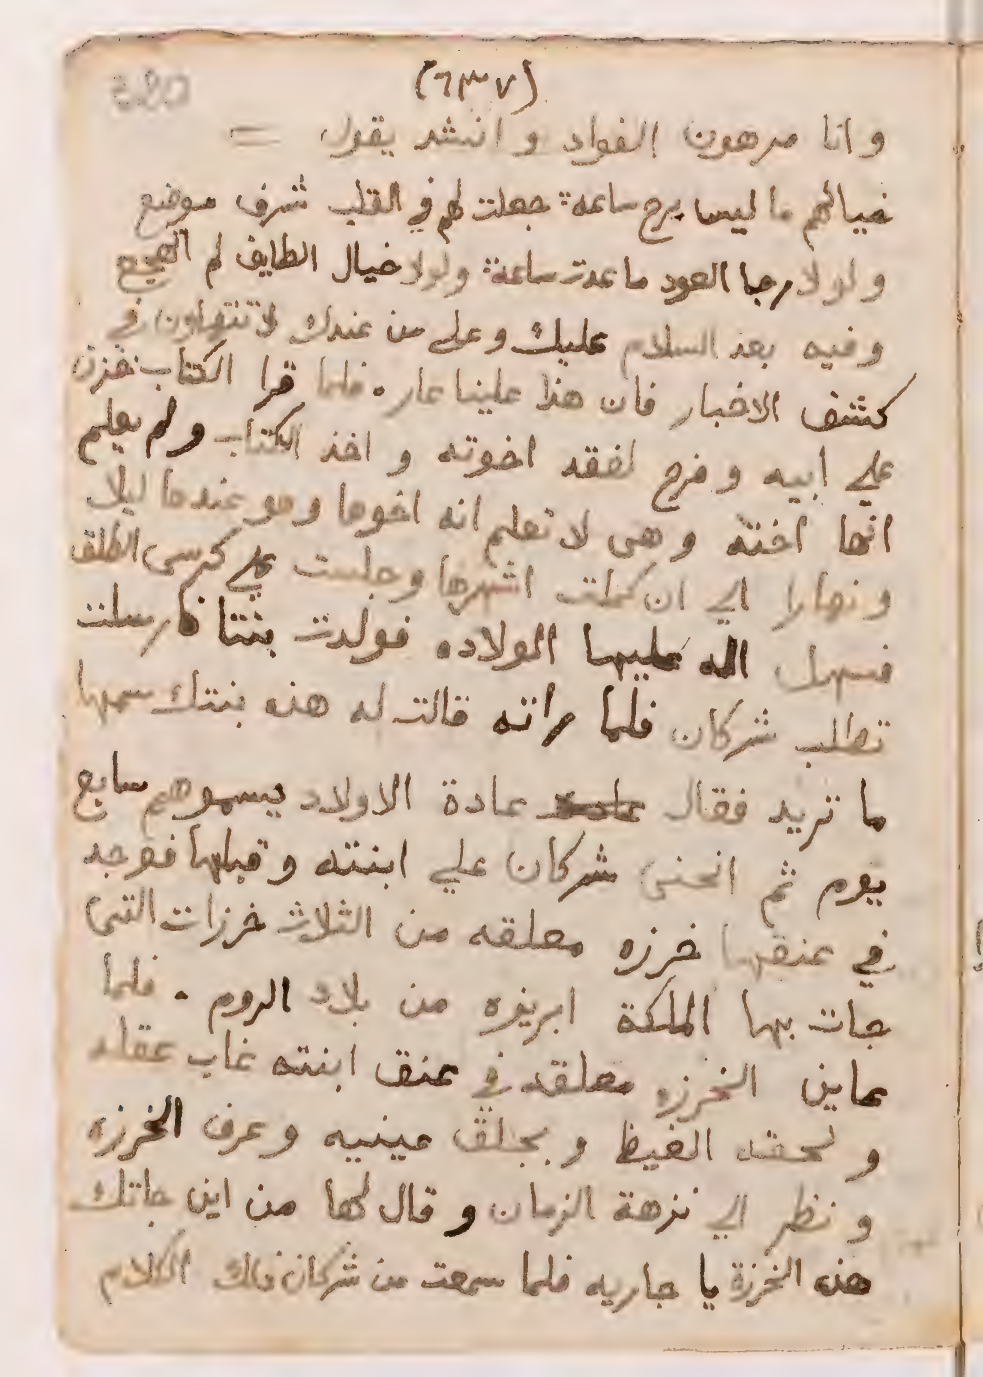 (٦٣٧)
وانا مرهون الفواد و انشد يقول =
خيالكم ما ليس يبرح ساعة: جعلت لهم في القلب شرف موضع
و لولا رجا العود ما عدت ساعة: ولولا خيال الطايف لم اهجع
وفيه بعد السلام عليك وعلي من عندك لا تتهاون في
كشف الاخبار فان هذا علينا عار . فلما قرا الكتاب حزن
علي ابيه و فرح لفقد اخوته و اخذ الكتاب ولم يعلم
انها اخته وهى لا تعلم انه اخوها وهو عندها ليلا
و نهارا الي ان كملت اشهرها وجلست علي كرسى الطلق
فسهل الله عليها الولاده فولدت بنتا فارسلت
تطلب شركان فلما راته قالت له هذه بنتك سمها
ما تريد فقال عادة الاولاد يسموهم سابع
يوم ثم انحنى شركان علي ابنته وقبلها فوجد
في عنقها خرزه معلقه من الثلاث خرزات التى
جات بها الملكة ابريزه من بلاد الروم . فلما
عاين الخرزه معلقه في عنق ابنته غاب عقله
و لحقه الغيظ و بحلق عينيه وعرف الخرزه
و نظر الي نزهة الزمان و قال لها من اين جاتك
هذه الخرزة يا جاريه فلما سمعت من شركان ذلك الكلام